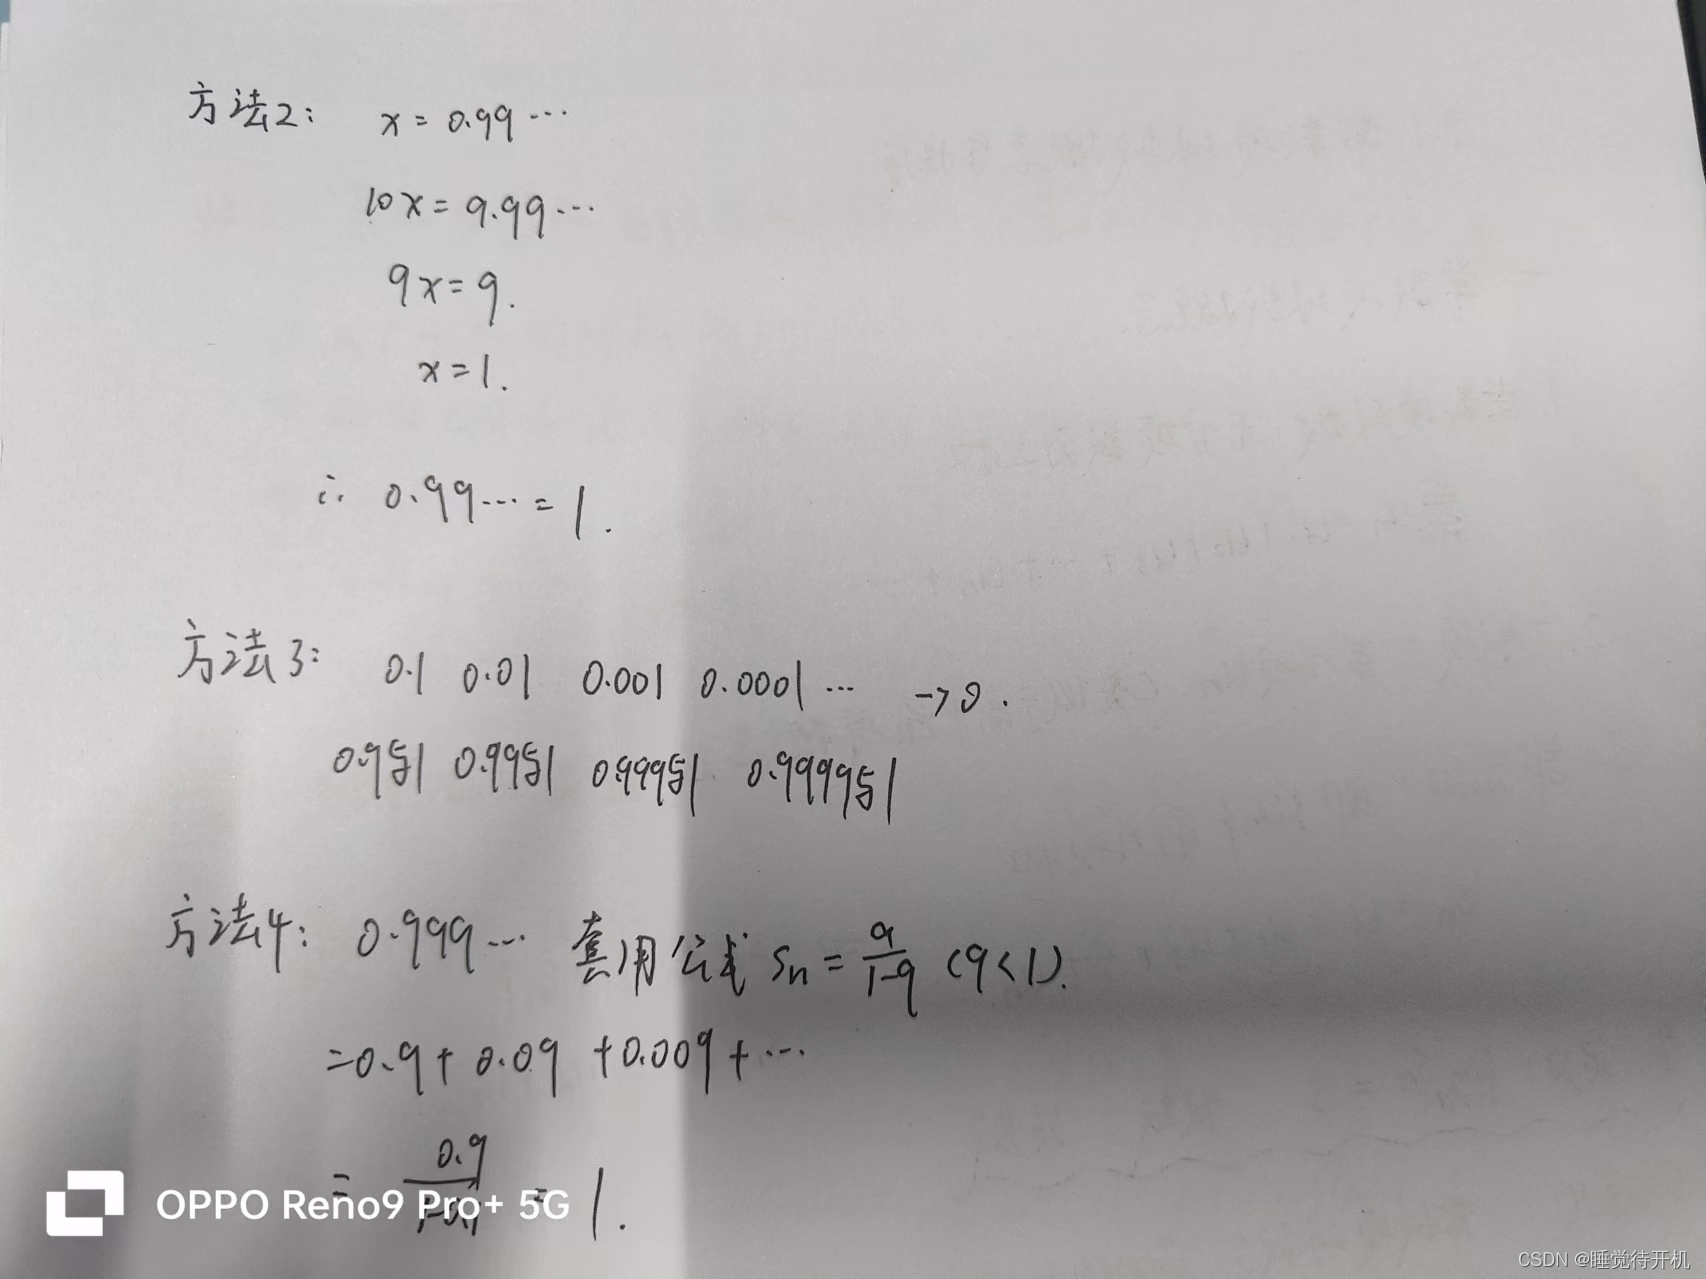 方法2: x = 0.99 ···
10x = 9.99 ···
9x = 9.
x = 1.
∴ 0.99 ··· = 1.
方法3: 0.1 0.01 0.001 0.0001 ··· → 0.
0.9与1 0.99与1 0.999与1 0.9999与1
方法4: 0.999 ··· 套用公式 Sn = a/(1-q) (q<1).
= 0.9 + 0.09 + 0.009 + ···
= 0.9/(1-0.1) = 1.
OPPO Reno9 Pro+ 5G
CSDN @睡觉待开机